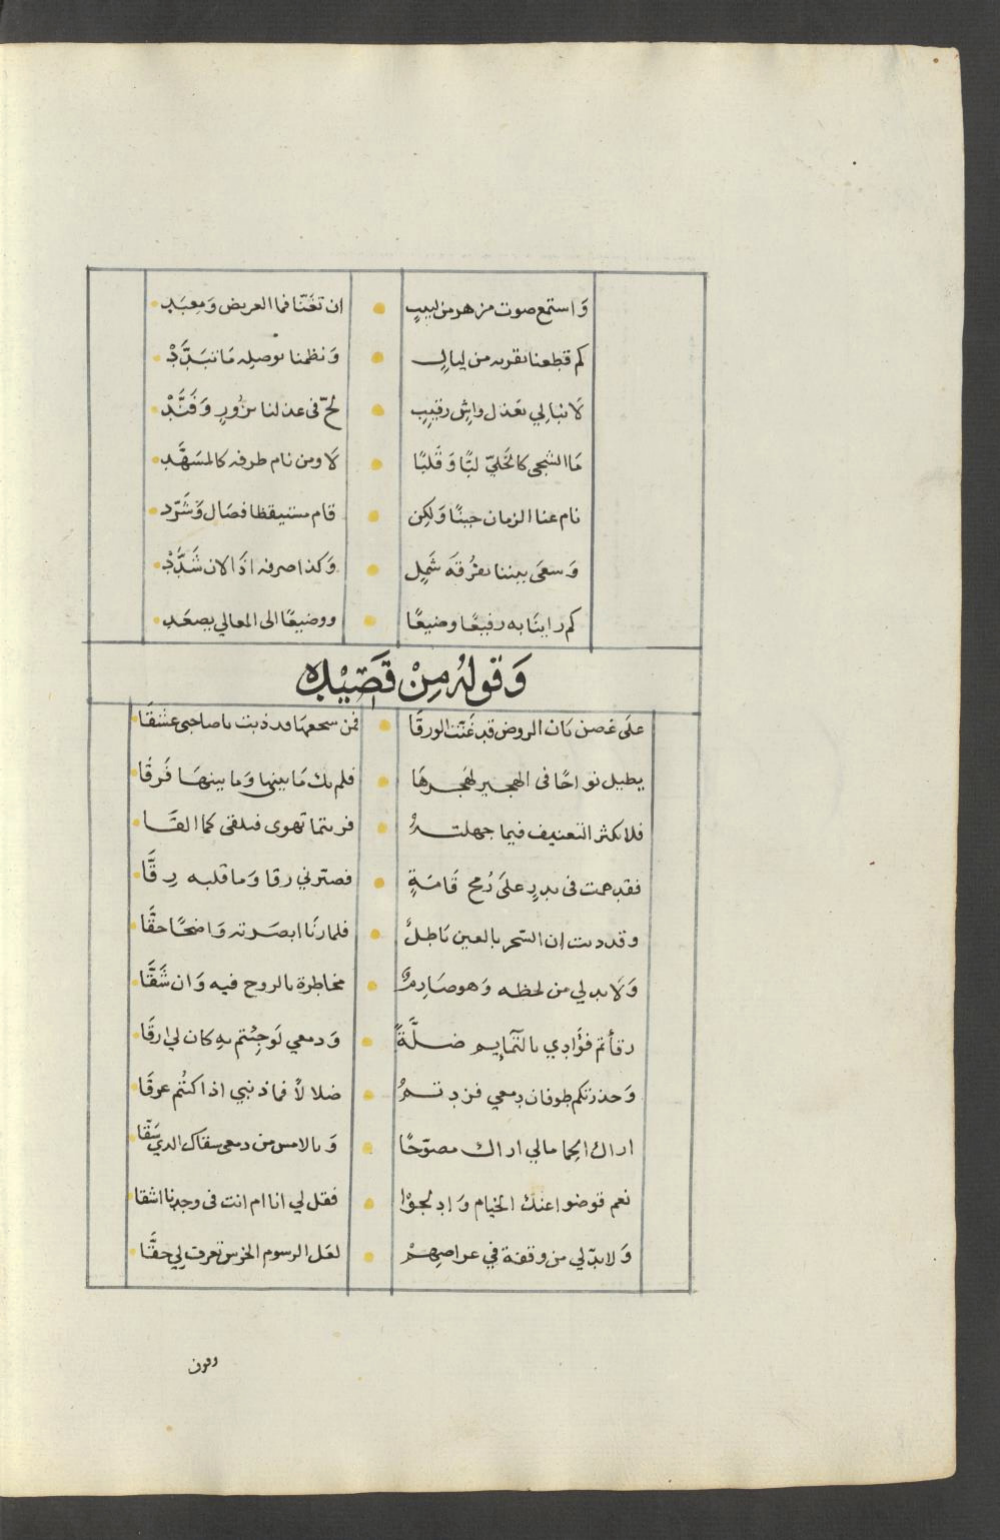 وَاستمع صوت مزهر من لبيبٍ • ان تغَنّا فما العريض وَمعبَدِ
كم قطعنا بقربه من ليالٍ • وَنظمنا بوصلِه مَا تبَدَّدْ
لَا نبالي بعَذل واشٍ رقيبٍ • لحّ في عذلنا بزُورٍ وَفَنَّدْ
مَا الشجى كالخَليّ لبًّا وَقَلبًا • لَا ومن نام طرفه كالمسَهَّدِ
نام عنا الزمان حينًا وَلكِن • قام مستيقظا فصَال وَشَرّد
وَسعَى بيننا بفُرقَة شَمِل • وَكذا صرفه اذَا لان شَدَّدْ
كم راينَا به رفيعًا وضيعًا • ووضيعًا الى المعالي يصعَدِ
وَقولهُ مِنْ قَصِيْده
علَى غصن بَان الروض قد غَنّت الورقَا • فمن سجعهَا قد ذبت يا صاحبي عشقَا
يطيل نواحًا في الهجير لهَجرهَا • فلم يك مَا بيني وَما بينهَا فَرقَا
فلا تكثر التعنيف فيما جهلتهُ • فربتما تهوى فتلقى كما القَا
فقد همت في بدرٍ علَى رُمح قَامَةٍ • فصيّرني رقا وَما قلبه رِقَّا
وقد دنت ان السّحر بالعين بَاطلٌ • فلما رنَا ابصَرته وَاضحًا حقَّا
وَلَا بد لي من لحظه وَهو صَارمٌ • مخاطرة بالروح فيه وَان شَقَّا
رقأتم فؤادِي بالتمايم ضلَّةً • وَدمعي لَو جئتم به كان لي ارقَا
وَحذرتكم طوفان دمعي فزدتمُ • ضلالاً فما ذنبي اذا كنتُم غرقَا
اراك الحما مالي اراك مصوّحًا • وَبالامس من دمعي سقاك الذي سَقّا
نعم قوضوا عنك الخيام وَادلجوْا • فقل لي انا ام انت في وجدنا اشقا
وَلا بدّ لي من وقفة في عراصِهِمْ • لعَل الرسوم الخرس تعرف لي حقَّا